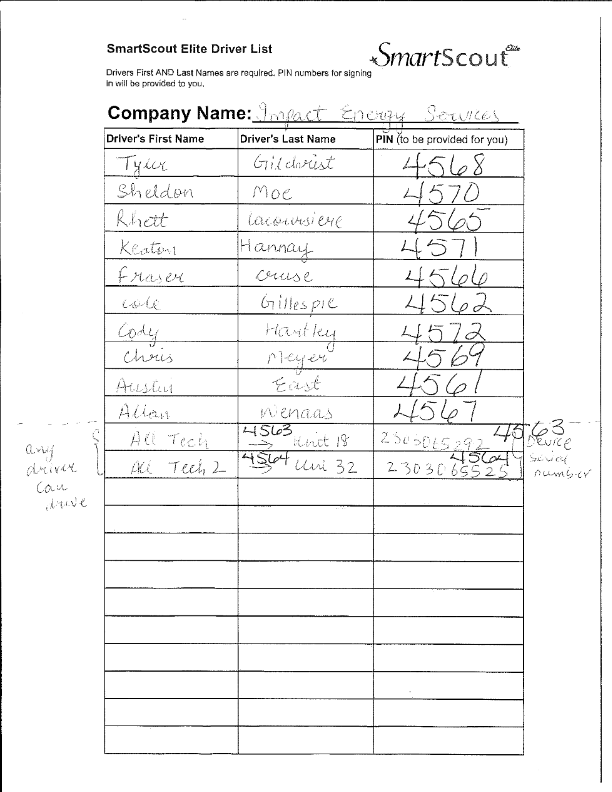 SmartScout Elite Driver List
SmartScout Elite
Drivers First AND Last Names are required. PIN numbers for signing
in will be provided to you.
Company Name: Impact Energy Services
Driver's First Name Driver's Last Name PIN (to be provided for you)
Tyler Gilchrist 4568
Sheldon Moe 4570
Rhett Lacoursiere 4565
Keaton Hannay 4571
Fraser Cruise 4566
Cole Gillespie 4562
Cody Hartley 4572
Chris Meyer 4569
Austin East 4561
Allan Wenaas 4567
All Tech 4563 → Unit 18 2303065292 4563
All Tech 2 4564 → Uni 32 2303065525 4564
any
driver
can
drive
Device
Serial
number